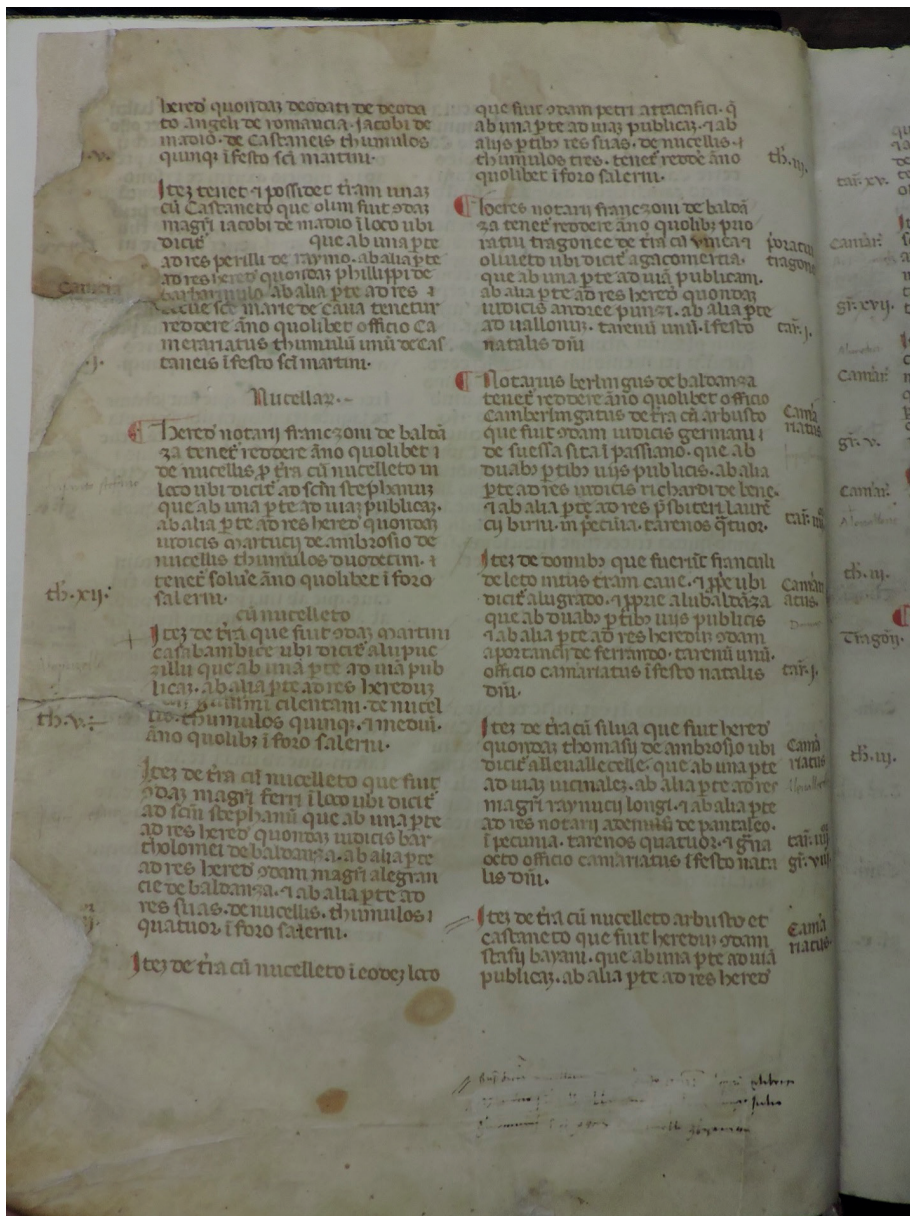 hered' quondaz deodati de deoda
to angeli de romancia. Jacobi de
madio. de Castaneis thumulos
quinq; ī festo sc̄i martini.
Itez tenet ⁊ possidet tr̄am unaz
cū Castaneto que olim fuit ꝯdaz
magr̄i iacobi de madio ī loco ubi
dicit̄ que ab una p̄te
ad res perilli de raymo. ab alia p̄te
ad res hered' quondaz phillippi de
ab alia p̄te ad res
sc̄e marie de Caua tenetur
reddere āno quolibet officio Ca
merariatus thumulū unū de Cas
taneis ī festo sc̄i martini.
Nucellaz.
Hered' notarij franczoni de baldā
za tenet̄ reddere āno quolibet ī
de nucellis p̱ tr̄a cū nucelleto in
loco ubi dicit̄ ad sc̄m stephanuz
que ab una p̄te ad uiaz publicaz.
ab alia p̄te ad res hered' quondaz
iudicis martucij de ambrosio de
nucellis thumulos duodecim. ⁊
tenet̄ solue āno quolibet ī foro
salerni.
th. xij.
cū nucelleto
Itez de tr̄a que fuit ꝯdaz martini
casabambice ubi dicit̄ alu puc
zillu que ab una p̄te ad uiā pub
licaz. ab alia p̄te ad res hereduz
cilentani. de nucel
thumulos quinq; ⁊ mediū.
āno quolibȝ ī foro salerni.
th. v.
Itez de tr̄a cū nucelleto que fuit
ꝯdaz magr̄i ferri ī loco ubi dicit̄
ad sc̄m stephanū que ab una p̄te
ad res hered' quondaz iudicis bar
tholomei de baldanza. ab alia p̄te
ad res hered' ꝯdam magr̄i alegran
cie de baldanza. ⁊ ab alia p̄te ad
res suas. de nucellis. thumulos
quatuor. ī foro salerni.
Itez de tr̄a cū nucelleto ī eodez loco
que fuit ꝯdam petri attacafici. q̄
ab una p̄te ad uiaz publicaz. ⁊ ab
alijs p̄tibȝ res suas. de nucellis.
thumulos tres. tenet̄ redde āno
quolibet ī foro salerni.
th. iij.
Heres notarij franczoni de baldā
za tenet̄ reddere āno quolibȝ prio
ratui tragonee de tr̄a cū vinea ⁊
oliueto ubi dicit̄ agacomercia.
que ab una p̄te ad uiā publicam.
ab alia p̄te ad res hered' quondaz
iudicis andree punzi. ab alia p̄te
ad uallonuz. tarenū unū. ī festo
natalis dn̄i
tar. j.
Notarius berlingus de baldanza
tenet̄ reddere āno quolibet officio
Camberlingatus de tr̄a cū arbusto
que fuit ꝯdam iudicis germani
de suessa sita ī passiano. que ab
duabȝ p̄tibȝ uijs publicis. ab alia
p̄te ad res iudicis richardi de bene.
⁊ ab alia p̄te ad res p̄sbiteri laurē
cij birtu. in pecūia. tarenos q̄tuor.
Itez de domibȝ que fuerūt franculi
de leto intus tr̄am caue. ⁊ ꝓpe ubi
dicit̄ alugrado. ⁊ ꝓprie alubaldāza
que ab duabȝ p̄tibȝ uijs publicis
⁊ ab alia p̄te ad res heredū ꝯdam
aportancij de ferrando. tarenū unū.
officio camariatus ī festo natalis
dn̄i.
tar. j.
Itez de tr̄a cū silua que fuit hered'
quondaz thomasij de ambrosio ubi
dicit̄ alleuallecelle. que ab una p̄te
ad uiaz uicinalez. ab alia p̄te ad res
magr̄i raynucij longi. ⁊ ab alia p̄te
ad res notarij ademulū de pantaleo.
ī pecunia. tarenos quatuor. ⁊ gr̄na
octo officio camariatus ī festo nata
lis dn̄i.
Camariatus
tar. iiij
gr. viij
Itez de tr̄a cū nucelleto arbusto et
castaneto que fuit heredū ꝯdam
stasij bayani. que ab una p̄te ad uiā
publicaz. ab alia p̄te ad res hered'
tar. xv.
Camar̄
gr. xvij.
Camar̄
gr. v.
Camar̄
th. iij.
Tragon̄.
th. iij.